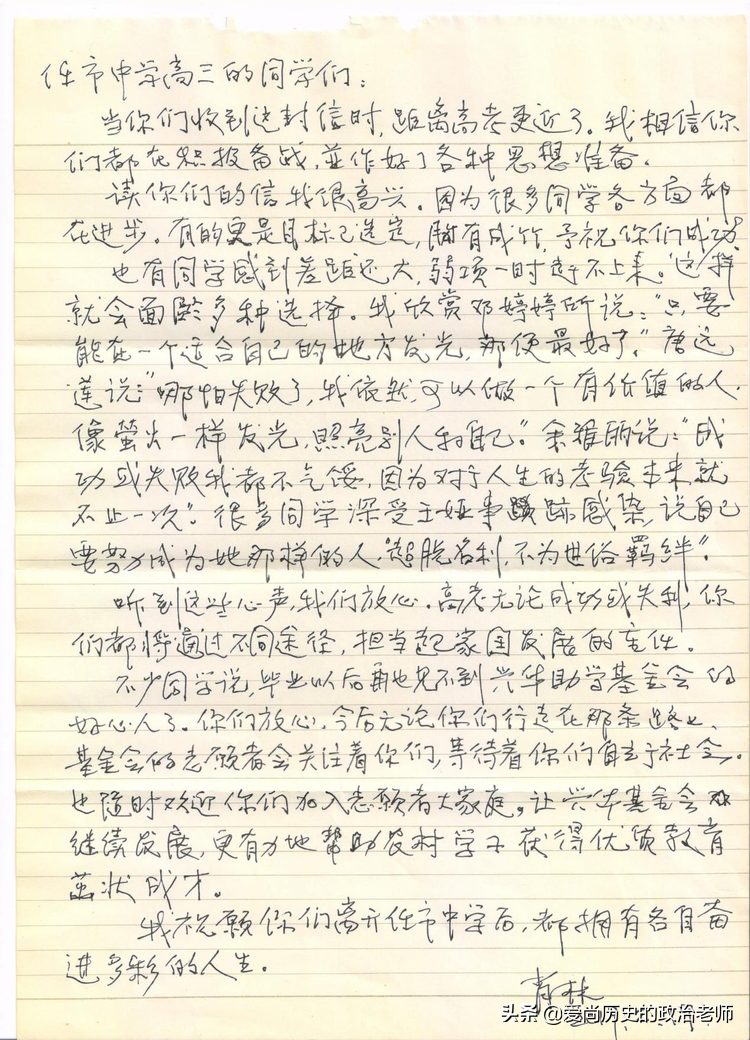 任市中学高三的同学们：
当你们收到这封信时，距离高考更近了。我相信你
们都在积极备战，並作好了各种思想准备。
读你们的信我很高兴。因为很多同学各方面都
在进步。有的更是目标已选定，胸有成竹，予祝你们成功。
也有同学感到差距还大，弱项一时赶不上来。这样
就会面临多种选择。我欣赏邓婷婷所说：“只要
能在一个适合自己的地方发光，那便最好了。”唐远
莲说：“哪怕失败了，我依然可以做一个有价值的人，
像萤火一样发光，照亮别人和自己”。余雅丽说：“成
功或失败我都不气馁，因为对于人生的考验本来就
不止一次”。很多同学深受王娅事蹟感染，说自己
要努力成为她那样的人，“超脱名利，不为世俗羁绊”。
听到这些心声，我们放心。高考无论成功或失利，你
们都将通过不同途径，担当起家国发展的责任。
不少同学说，毕业以后再也见不到兴华助学基金会的
好心人了。你们放心，今后无论你们行走在那条路上，
基金会的志愿者会关注着你们，等待着你们自立于社会，
也随时欢迎你们加入志愿者大家庭。让兴华基金会
继续发展，更有力地帮助农村学子获得优质教育
茁状成才。
我祝愿你们离开任市中学后，都拥有各自奋
进多彩的人生。
头条 @爱尚历史的政治老师